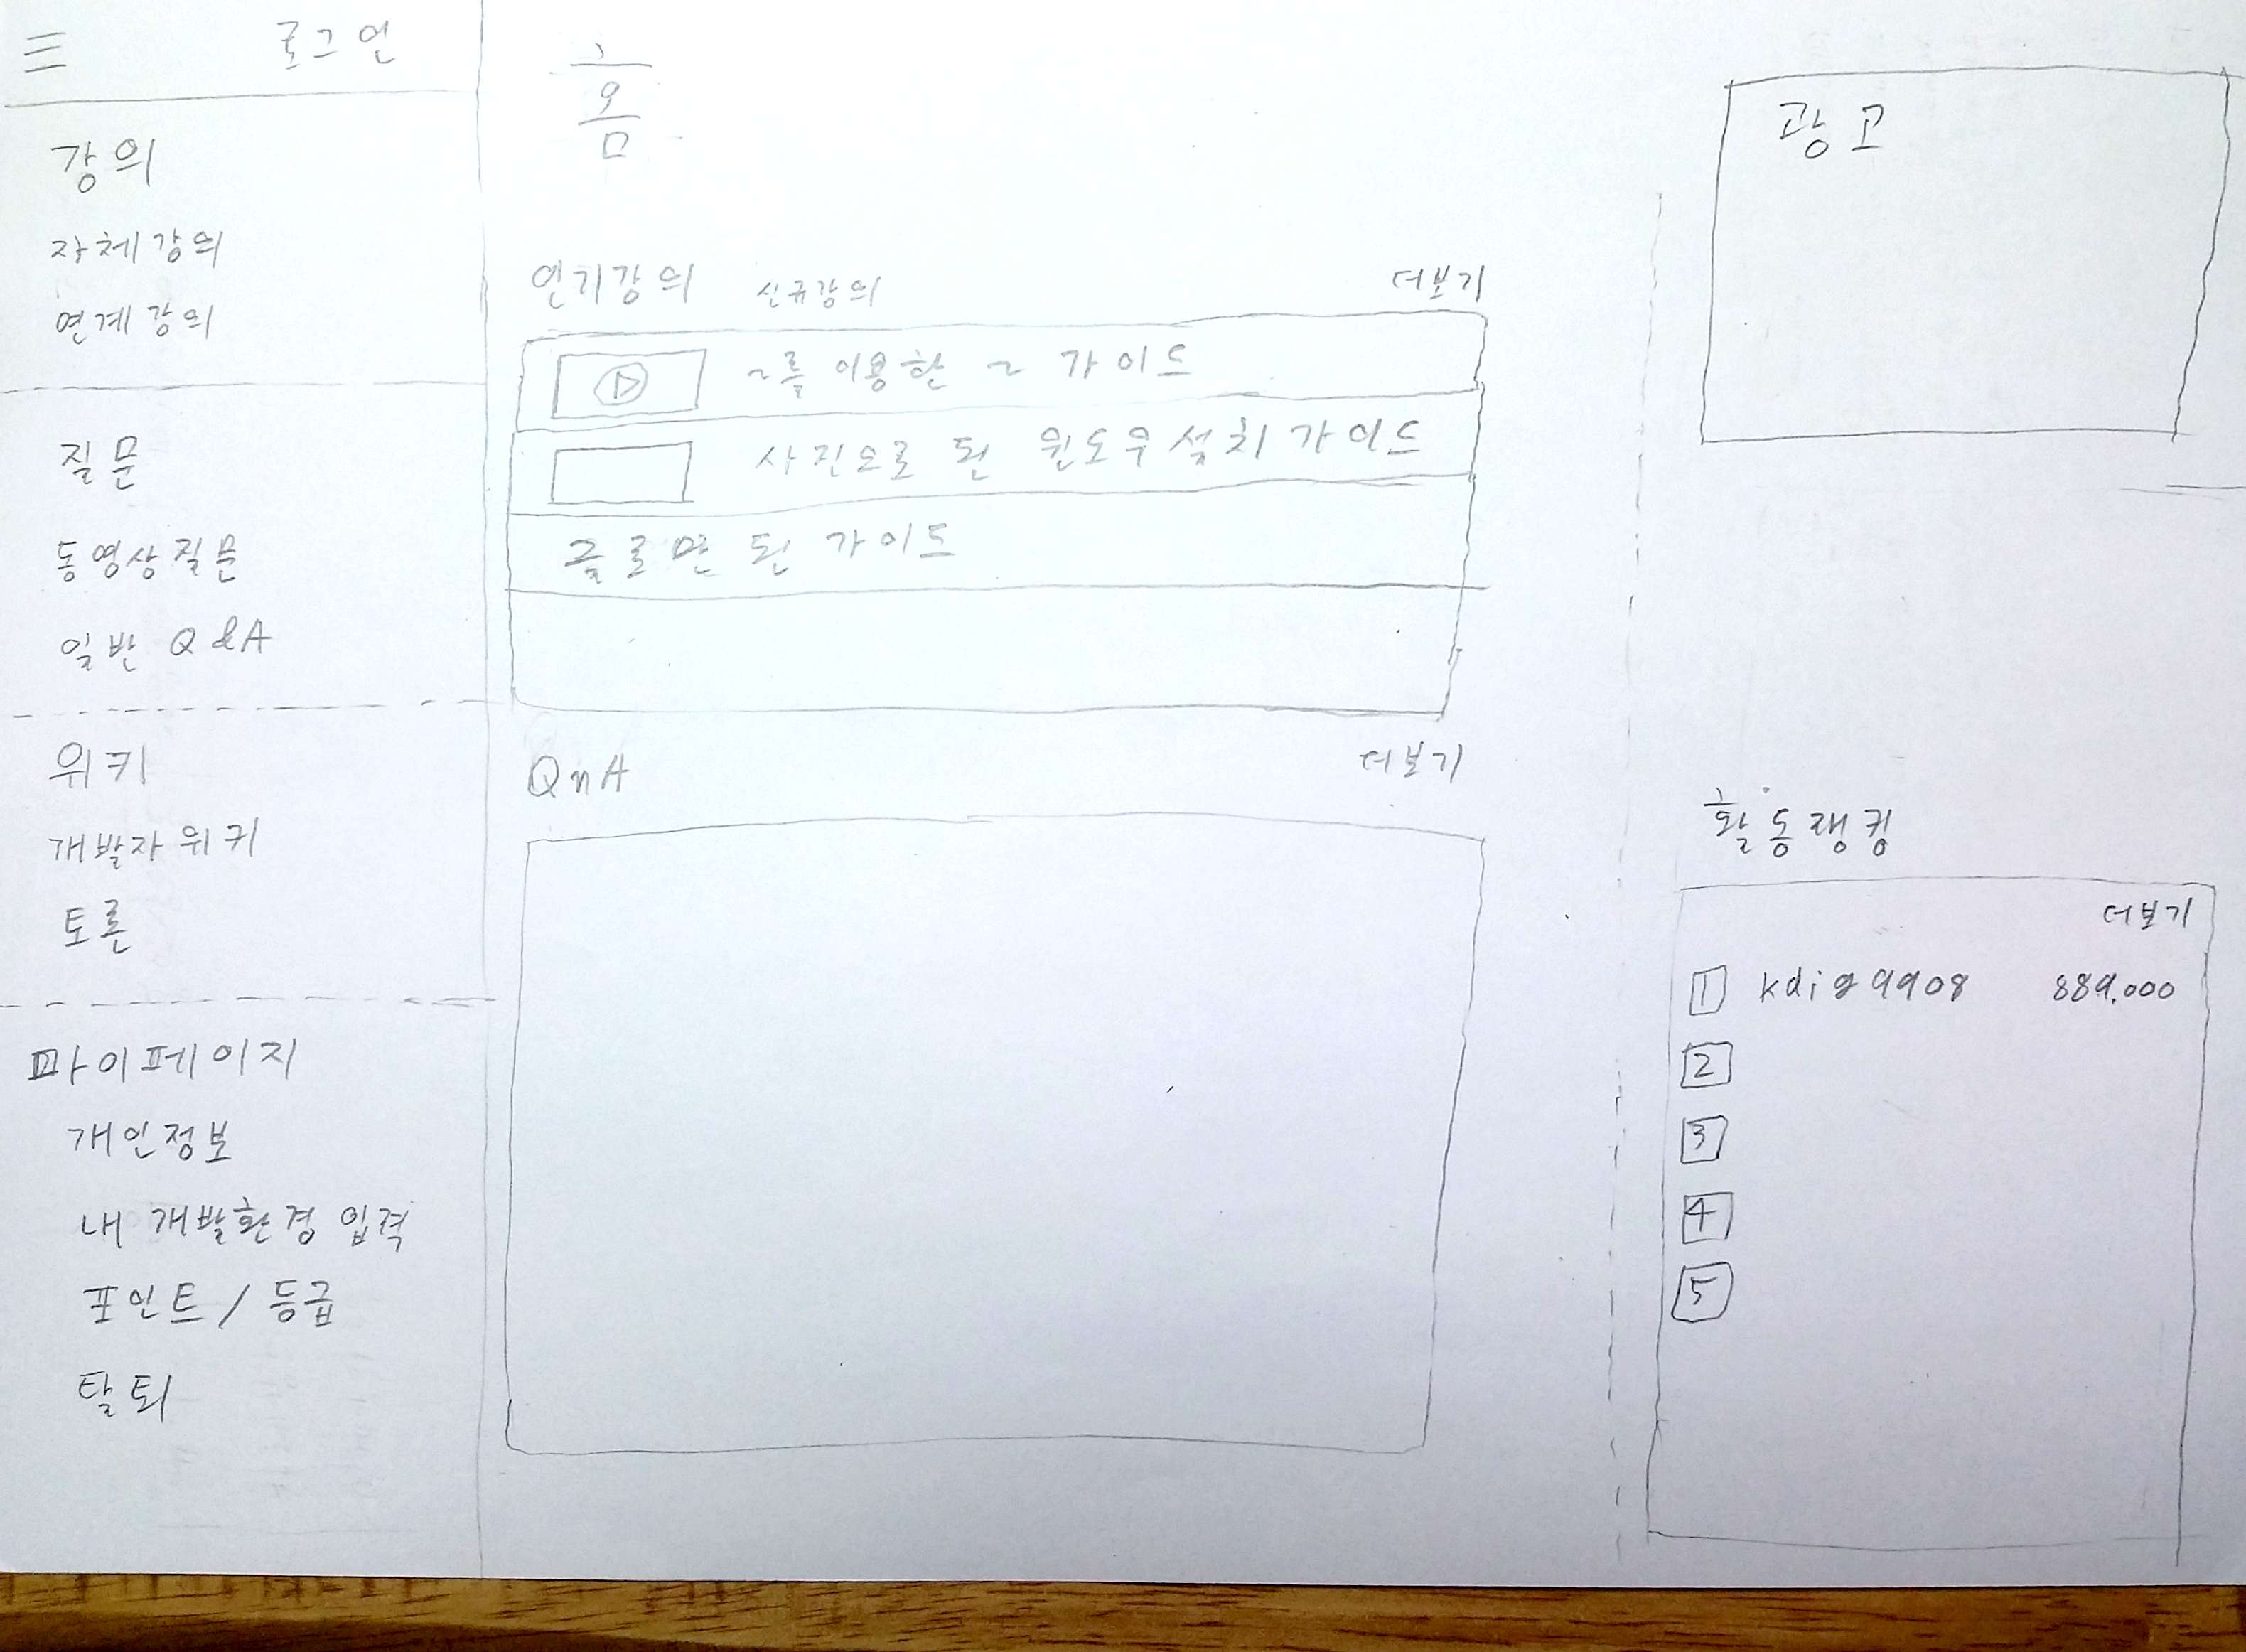 로그인
강의
자체강의
연계강의
질문
동영상질문
일반 Q&A
위키
개발자위키
토론
마이페이지
개인정보
내 개발환경 입력
포인트 / 등급
탈퇴
홈
인기강의 신규강의 더보기
~를 이용한 ~ 가이드
사진으로 된 윈도우설치가이드
글로만 된 가이드
QnA 더보기
광고
활동랭킹
더보기
1 kdig9908 889,000
2
3
4
5